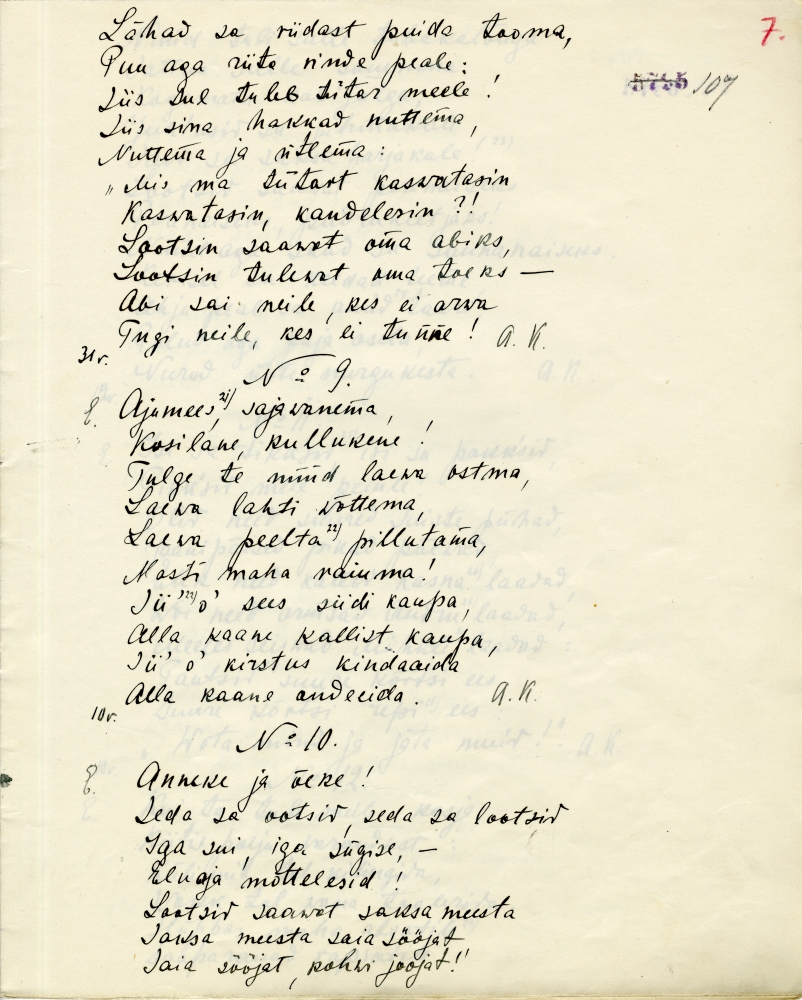 7.
5755 107
Lähad sa riidast puida tooma,
Puu aga riita rinde peale:
Siis sul tuleb tütar meele!
Siis sina hakkad nuttema,
Nuttema ja ütlema:
„Mis ma tütart kaswatasin
Kaswatasin, kandelesin?!
Lootsin saawat oma abiks,
Lootsin tulewat oma toeks —
Abi sai neile, kes ei arwa
Tugi neile, kes ei tunne! A. K.
31r.
No 9.
E. Ajumees, 21) sajawanema,
Kosiläne, kullukene!
Tulge te nüüd laewa ostma,
Laewa lahti wõttema,
Laewa peelta 22) pillutama,
Masti maha raiuma!
Sii' 22) o' sees siidi kaupa,
Alla kaane kallist kaupa,
Sii' o' kirstus kindaaida
Alla kaane andeeida. A. K.
10r.
No 10.
E. Anneke ja õeke!
Seda sa ootsid, seda sa lootsid
Iga sui, iga sügise, —
Eluaja mõttelesid!
Lootsid saawat saksa meesta
Saksa meesta saia sööjat
Saia sööjat, kohwi joojat!!